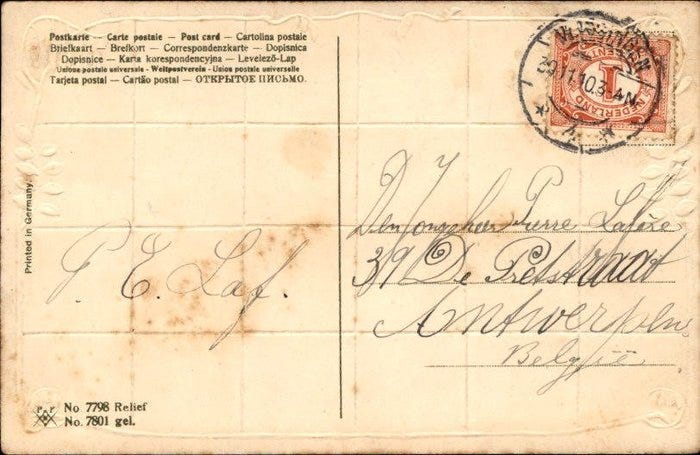 Postkarte — Carte postale — Post card — Cartolina postale
Briefkaart — Brefkort — Correspondenzkarte — Dopisnica
Dopisnice — Karta korespondencyjna — Levelező-Lap
Unione postale universale - Weltpostverein - Union postale universelle
Tarjeta postal — Cartão postal — ОТКРЫТОЕ ПИСЬМО.
VLISSINGEN
NEDERLAND
1
Printed in Germany.
P. E. Laf.
D. J.
Den Jongheer Pierre Lafère
39 De Pretstraat
Antwerpen
België
No. 7798 Relief
No. 7801 gel.